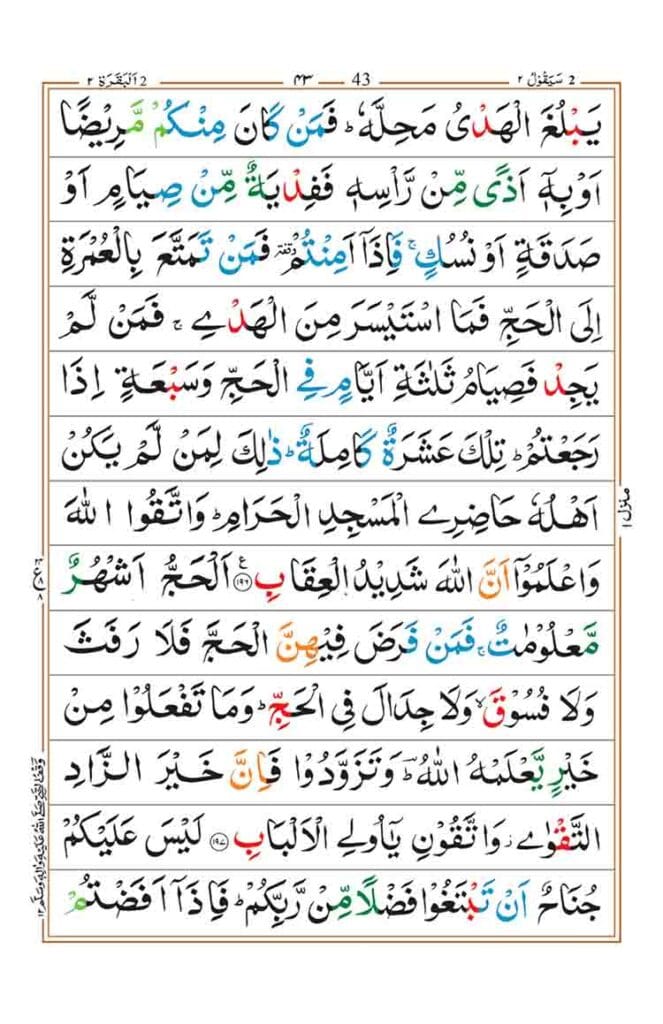 2 سَيَقُوْلُ ٢
43 ٤٣
2 اَلْبَقَرَة ٢
يَبْلُغَ الْهَدْىُ مَحِلَّهٗ ؕ فَمَنْ كَانَ مِنْكُمْ مَّرِيْضًا
اَوْ بِهٖۤ اَذًى مِّنْ رَّاْسِهٖ فَفِدْيَةٌ مِّنْ صِيَامٍ اَوْ
صَدَقَةٍ اَوْ نُسُكٍ ۚ فَاِذَاۤ اَمِنْتُمْ ۥ فَمَنْ تَمَتَّعَ بِالْعُمْرَةِ
اِلَى الْحَجِّ فَمَا اسْتَيْسَرَ مِنَ الْهَدْيِ ۚ فَمَنْ لَّمْ
يَجِدْ فَصِيَامُ ثَلٰثَةِ اَيَّامٍ فِي الْحَجِّ وَسَبْعَةٍ اِذَا
رَجَعْتُمْ ؕ تِلْكَ عَشَرَةٌ كَامِلَةٌ ؕ ذٰلِكَ لِمَنْ لَّمْ يَكُنْ
اَهْلُهٗ حَاضِرِي الْمَسْجِدِ الْحَرَامِ ؕ وَاتَّقُوا اللّٰهَ
وَاعْلَمُوْۤا اَنَّ اللّٰهَ شَدِيْدُ الْعِقَابِ ۝۱۹۶ اَلْحَجُّ اَشْهُرٌ
مَّعْلُوْمٰتٌ ۚ فَمَنْ فَرَضَ فِيْهِنَّ الْحَجَّ فَلَا رَفَثَ
وَلَا فُسُوْقَ ۙ وَلَا جِدَالَ فِى الْحَجِّ ؕ وَمَا تَفْعَلُوْا مِنْ
خَيْرٍ يَّعْلَمْهُ اللّٰهُ ؔؕ وَتَزَوَّدُوْا فَاِنَّ خَيْرَ الزَّادِ
التَّقْوٰى ؗ وَاتَّقُوْنِ يٰۤاُولِي الْاَلْبَابِ ۝۱۹۷ لَيْسَ عَلَيْكُمْ
جُنَاحٌ اَنْ تَبْتَغُوْا فَضْلًا مِّنْ رَّبِّكُمْ ؕ فَاِذَاۤ اَفَضْتُمْ
منزل ١